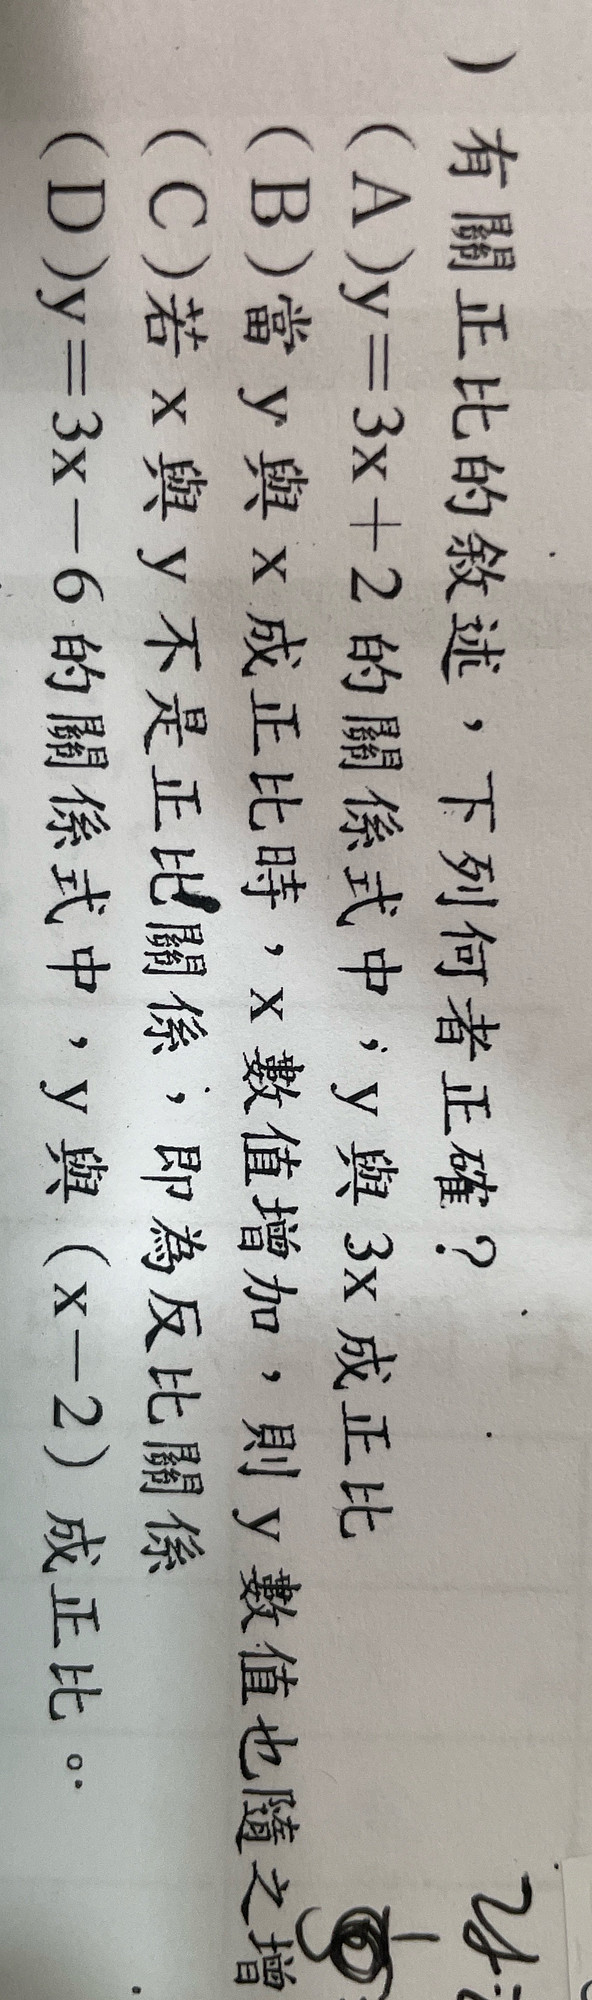 ) 有關正比的敘述，下列何者正確？
(A)y=3x+2 的關係式中，y 與 3x 成正比
(B)當 y 與 x 成正比時，x 數值增加，則 y 數值也隨之增
(C)若 x 與 y 不是正比關係，即為反比關係
(D)y=3x-6 的關係式中，y 與 (x-2) 成正比。